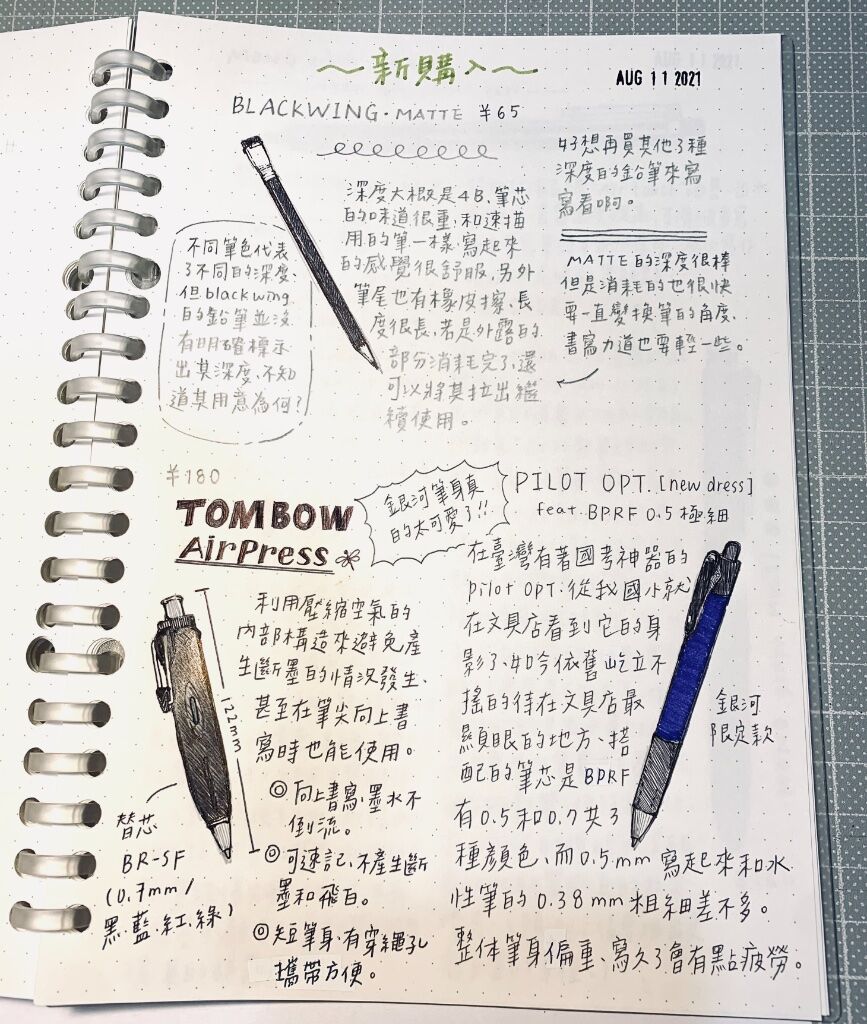 ～新購入～
AUG 11 2021
BLACKWING・MATTE ¥65
深度大概是4B、筆芯
的味道很重、和速描
用的筆一樣、寫起來
的感覺很舒服、另外
筆尾也有橡皮擦、長
度很長、若是外露的
部分消耗完了、還
可以將其拉出繼
續使用。
不同筆色代表
了不同的深度、
但blackwing
的鉛筆並沒
有明確標示
出其深度、不知
道其用意為何？
好想再買其他3種
深度的鉛筆來寫
寫看啊。
MATTE的深度很棒
但是消耗的也很快
要一直變換筆的角度、
書寫力道也要輕一些。
¥180
TOMBOW
AirPress
利用壓縮空氣的
內部構造來避免產
生斷墨的情況發生、
甚至在筆尖向上書
寫時也能使用。
◎向上書寫、墨水不
倒流。
◎可速記、不產生斷
墨和飛白。
◎短筆身、有穿繩孔
攜帶方便。
122mm
替芯
BR-SF
(0.7mm/
黑、藍、紅、綠)
銀河筆身真
的太可愛了!!
PILOT OPT. [new dress]
feat. BPRF 0.5 極細
在臺灣有著國考神器的
pilot OPT、從我國小就
在文具店看到它的身
影了、如今依舊屹立不
搖的待在文具店最
顯眼的地方、搭
配的筆芯是BPRF
有0.5和0.7共3
種顏色、而0.5mm寫起來和水
性筆的0.38mm粗細差不多。
整体筆身偏重、寫久了會有點疲勞。
銀河
限定款